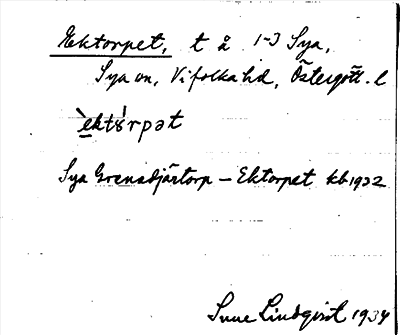 Ektorpet, t å 1-3 Sya,
Sya sn, Vifolka hd, Östergötl. l
è̱ktòrpət
Sya Grenadjärtorp – Ektorpet kb 1932
Sune Lindqvist 1934